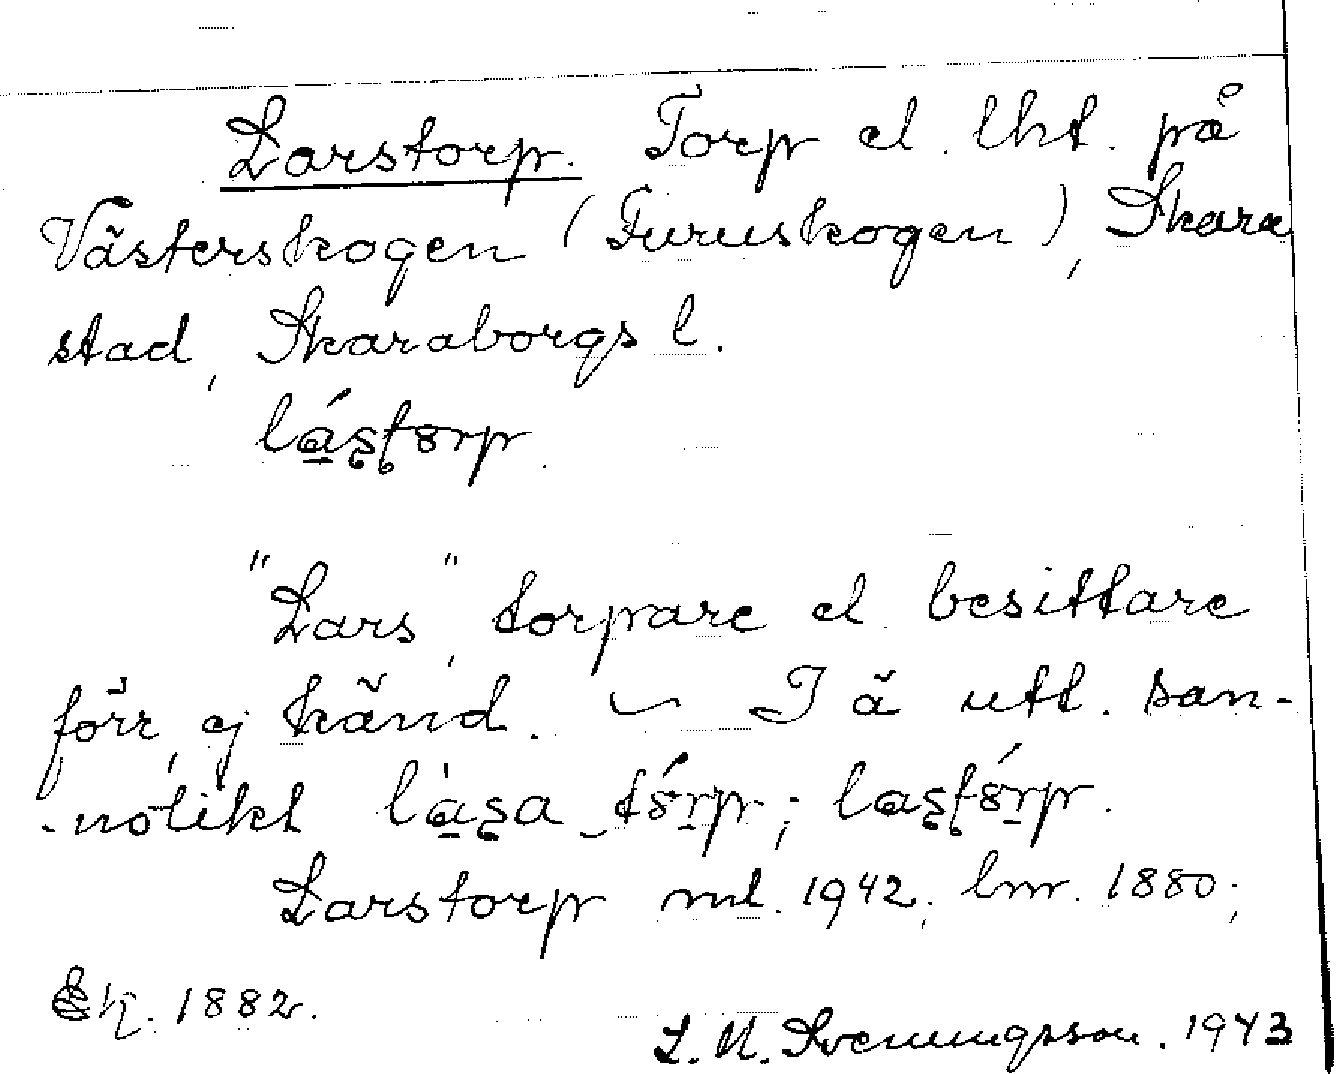 Larstorp. Torp el. lht. på
Västerskogen (Furuskogen), Skara
stad, Skaraborgs l.
lá̱ʂʈɤrp.
"Lars", torpare el. besittare
förr, ej känd. ~ I ä utt. san-
-nolikt là̱ʂa tɤ́rp; laʂʈɤ́rp.
Larstorp ml. 1942; lmr. 1880;
Ek. 1882.
L. M. Svenungsson. 1943